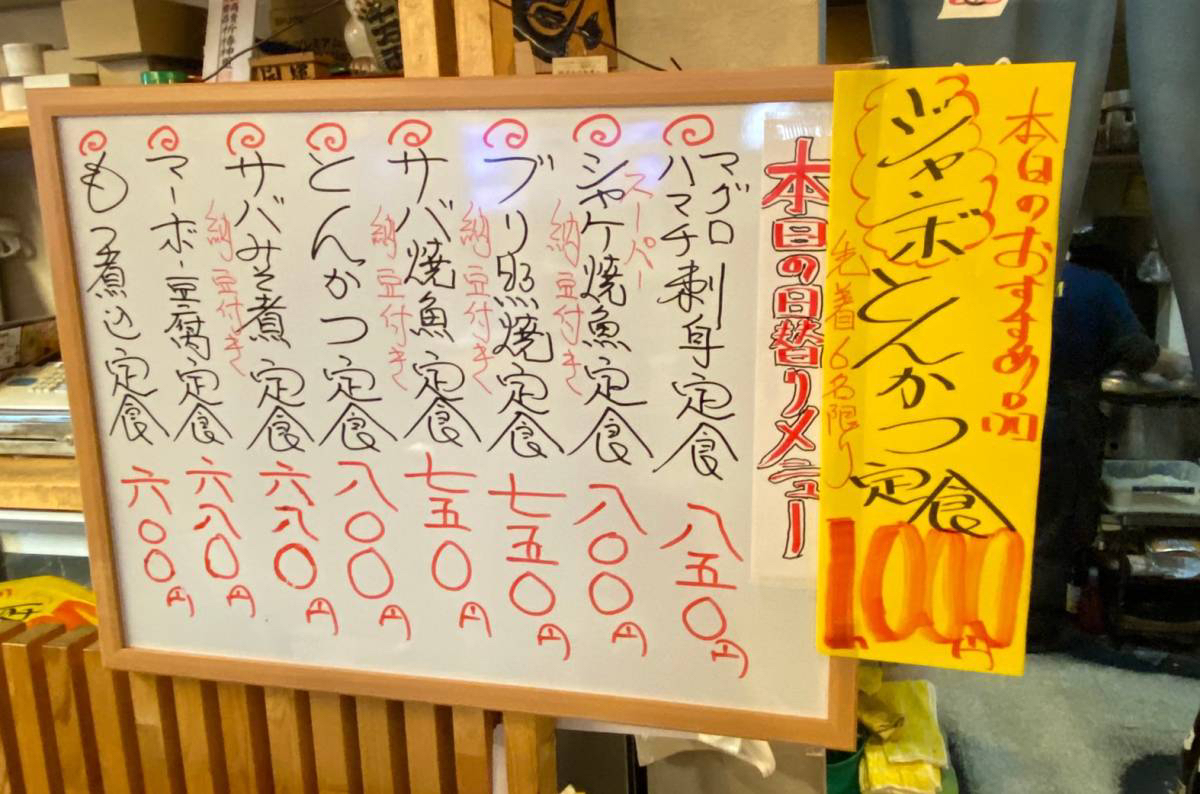 本日のおすすめ品
ジャンボとんかつ定食
先着6名限り
1,000円
本日の日替りメニュー
マグロ
ハマチ刺身定食 八五〇円
スーパー
シャケ焼魚定食 八〇〇円
納豆付き
ブリ照焼定食 七五〇円
納豆付き
サバ焼魚定食 七五〇円
納豆付き
とんかつ定食 八〇〇円
サバみそ煮定食 六八〇円
納豆付き
マーボー豆腐定食 六八〇円
もつ煮込定食 六〇〇円